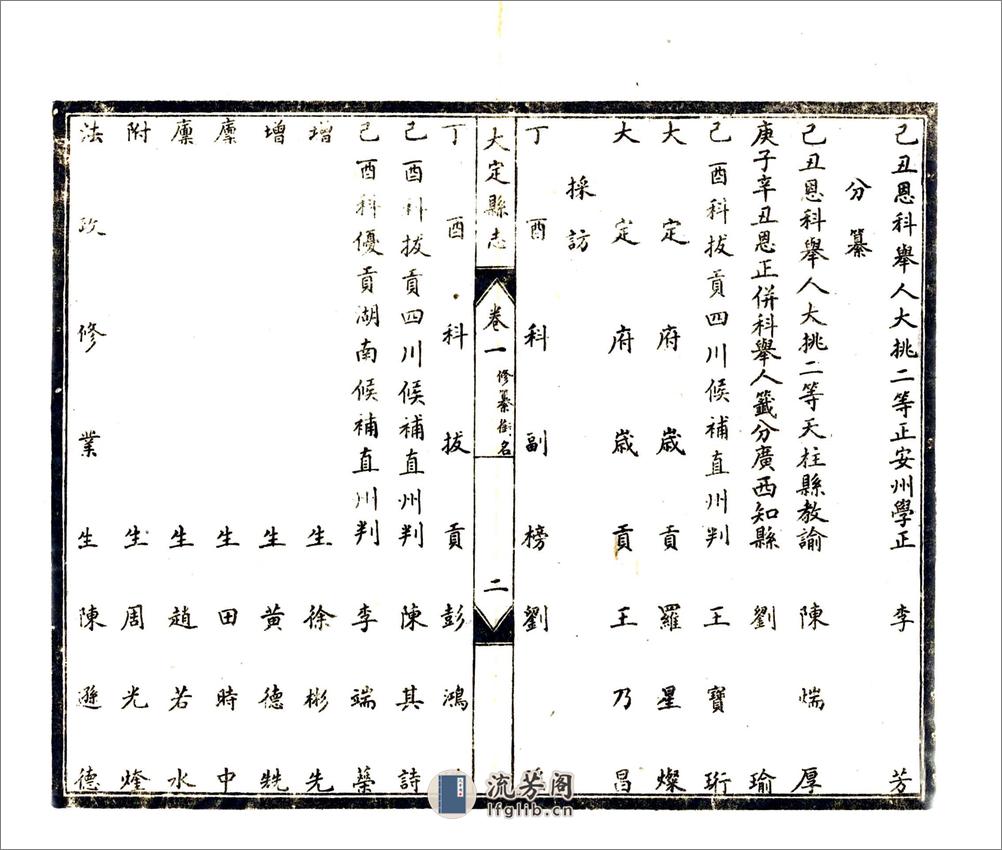 己丑恩科舉人大挑二等正安州學正李芳
分纂
己丑恩科舉人大挑二等天柱縣教諭陳煓厚
庚子辛丑恩正併科舉人籤分廣西知縣劉瑜
己酉科拔貢四川候補直州判王寶珩
大定府歲貢羅星燦
大定府歲貢王乃昌
採訪
丁酉科副榜劉
大定縣志
卷一
修纂銜名
二
丁酉科拔貢彭鴻
己酉科拔貢四川候補直州判陳其詩
己酉科優貢湖南候補直州判李端棻
增生徐彬先
增生黃德兟
廩生田時中
廩生趙若水
附生周光燈
法政修業生陳遜德
流芳阁
lfglib.cn